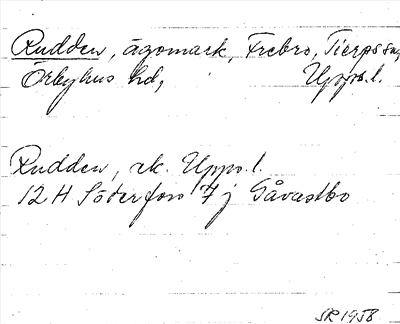 Rudden, ägomark, Frebro, Tierps sn,
Örbyhus hd, Upps.l.
Rudden, ek. Upps.l.
12 H Söderfors 7 j Gåvastbo
SR 1958